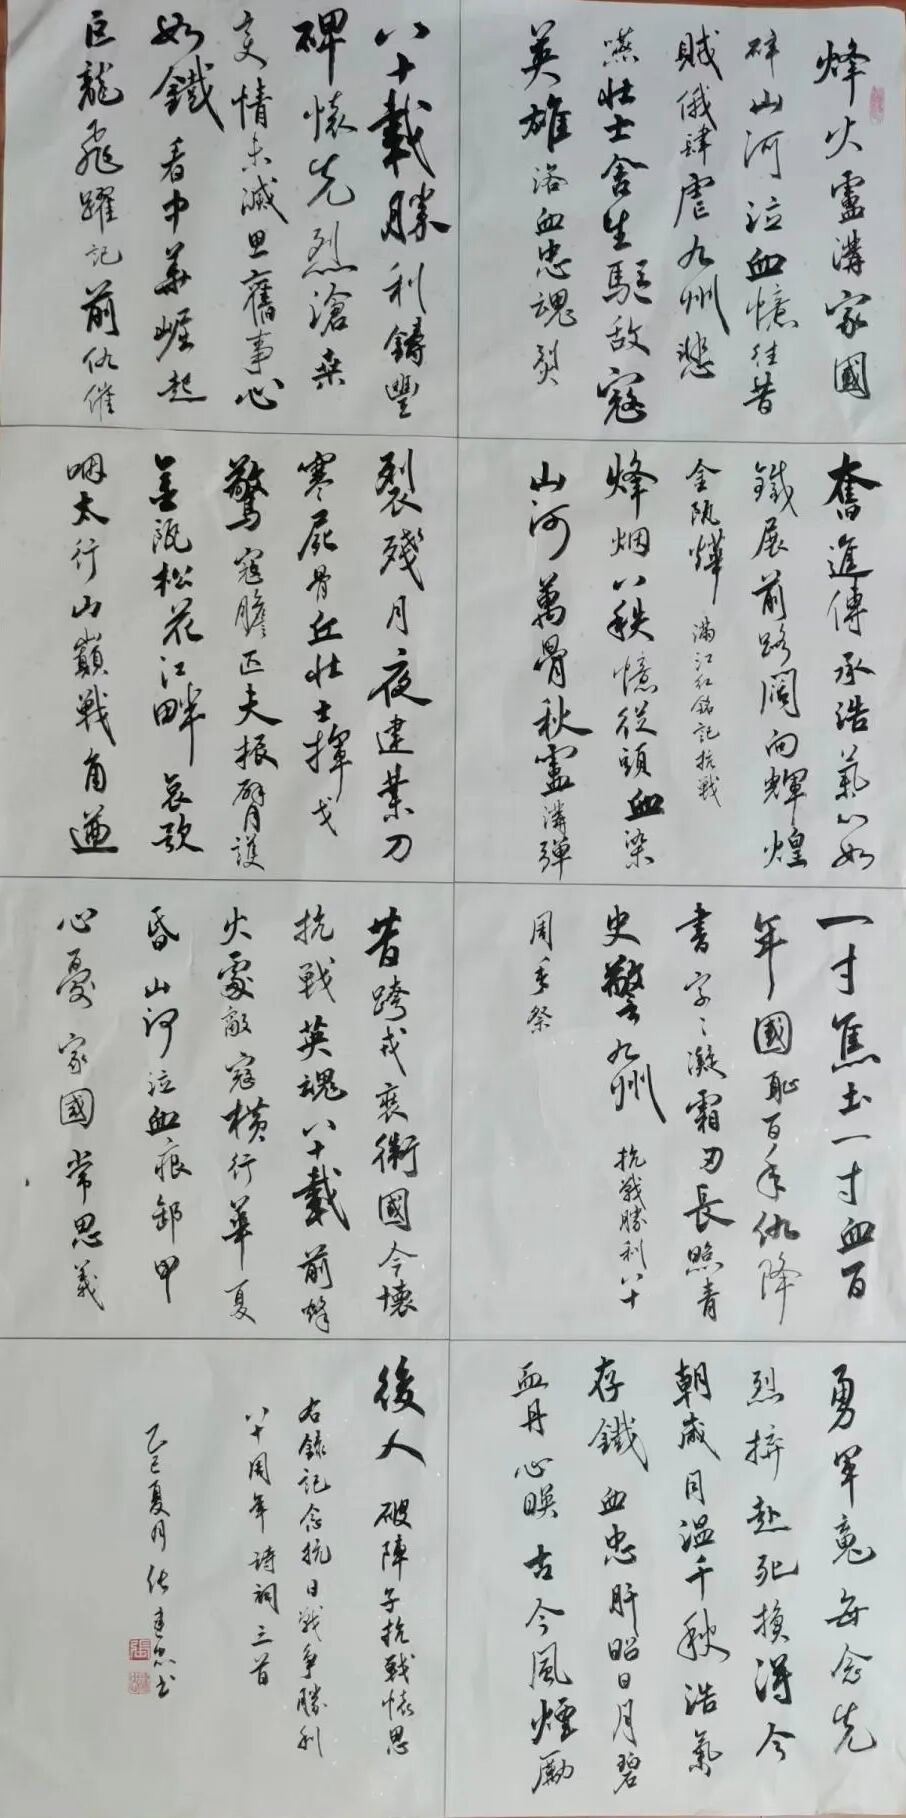 烽火盧溝家國
碎山河泣血憶往昔
賊俄肆虐九州悲
燃壮士舍生驅敌寇
英雄洛血忠魂烈
八十載勝利鑄豐
碑懷先烈滄桑
変情未滅思舊事心
如鐵看中華崛起
巨龍飛躍記前仇催
奮進傳承浩氣心如
鐵展前路闊向輝煌
金甌燁 满江红銘記抗戰
烽烟八秩憶從頭血染
山河萬骨秋盧溝弹
裂殘月夜建業刀
寒屍骨丘壮士揮戈
驚寇膽匹夫振臂護
金甌松花江畔哀歌
咽太行山巔戰角遒
一寸焦土一寸血百
年國恥百年仇降
書字〻凝霜刃長照青
史警九州 抗戰勝利八十
周年祭
昔跨戎衣衛國今懷
抗戰英魂八十載前烽
火處敵寇橫行華夏
昏山河泣血痕卸甲
心憂家國常思義
勇軍魂每念先
烈摒赴死換得今
朝歲月温千秋浩氣
存鐵血忠肝昭日月碧
血丹心映古今風煙勵
後人 破陣子抗戰懷思
右錄記念抗日戰争勝利
八十周年詩詞三首
乙巳夏月張建忠书